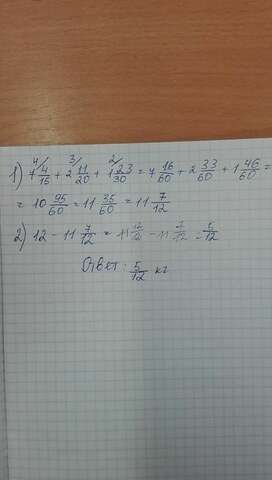 1) 7 4/15 + 2 11/20 + 1 23/30 = 7 16/60 + 2 33/60 + 1 46/60 =
= 10 95/60 = 11 35/60 = 11 7/12
2) 12 - 11 7/12 = 11 12/12 - 11 7/12 = 5/12
Ответ: 5/12 кг